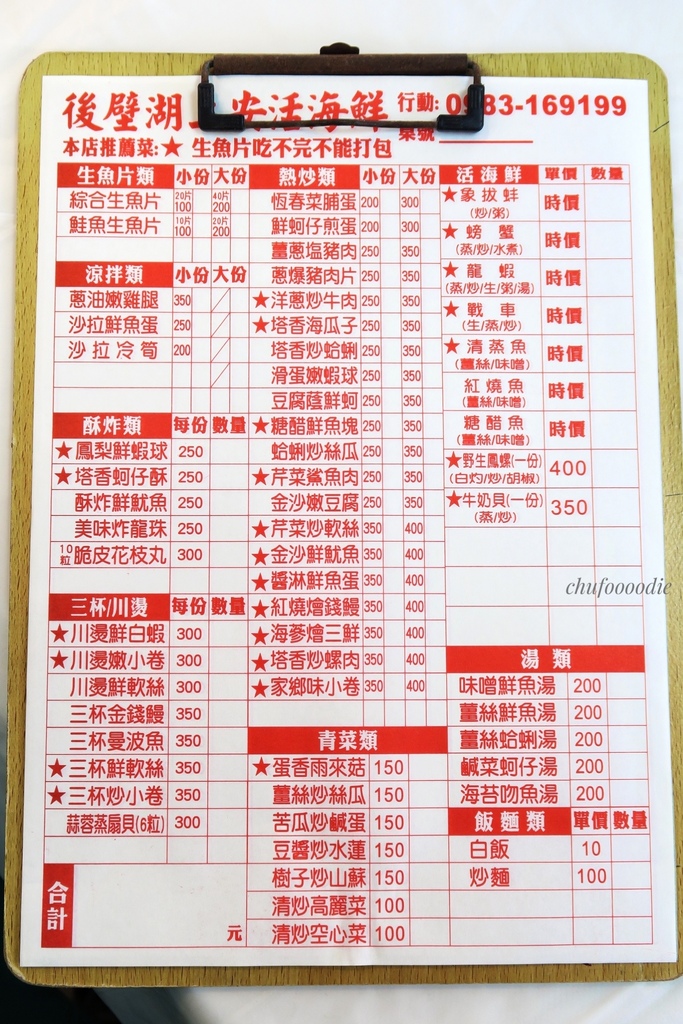 後壁湖 活海鮮 行動: 0 83-169199
桌號
本店推薦菜:★ 生魚片吃不完不能打包
生魚片類 小份 大份
綜合生魚片 20片 100 40片 200
鮭魚生魚片 10片 100 20片 200
涼拌類 小份 大份
蔥油嫩雞腿 350
沙拉鮮魚蛋 250
沙拉冷筍 200
酥炸類 每份 數量
★鳳梨鮮蝦球 250
★塔香蚵仔酥 250
酥炸鮮魷魚 250
美味炸龍珠 250
10粒 脆皮花枝丸 300
三杯/川燙 每份 數量
★川燙鮮白蝦 300
★川燙嫩小卷 300
川燙鮮軟絲 300
三杯金錢鰻 350
三杯曼波魚 350
★三杯鮮軟絲 350
★三杯炒小卷 350
蒜蓉蒸扇貝(6粒) 300
合計 元
熱炒類 小份 大份
恆春菜脯蛋 200 300
鮮蚵仔煎蛋 200 300
薑蔥塩豬肉 250 350
蔥爆豬肉片 250 350
★洋蔥炒牛肉 250 350
★塔香海瓜子 250 350
塔香炒蛤蜊 250 350
滑蛋嫩蝦球 250 350
豆腐蔭鮮蚵 250 350
★糖醋鮮魚塊 250 350
蛤蜊炒絲瓜 250 350
★芹菜鯊魚肉 250 350
金沙嫩豆腐 250 350
★芹菜炒軟絲 350 400
★金沙鮮魷魚 350 400
★醬淋鮮魚蛋 350 400
★紅燒燴錢鰻 350 400
★海蔘燴三鮮 350 400
★塔香炒螺肉 350 400
★家鄉味小卷 350 400
青菜類
★蛋香雨來菇 150
薑絲炒絲瓜 150
苦瓜炒鹹蛋 150
豆醬炒水蓮 150
樹子炒山蘇 150
清炒高麗菜 100
清炒空心菜 100
活海鮮 單價 數量
★象拔蚌 時價
(炒/粥)
★螃蟹 時價
(蒸/炒/水煮)
★龍蝦 時價
(蒸/炒/生/粥/湯)
★戰車 時價
(生/蒸/炒)
★清蒸魚 時價
(薑絲/味噌)
紅燒魚 時價
(薑絲/味噌)
糖醋魚 時價
(薑絲/味噌)
★野生鳳螺(一份) 400
(白灼/炒/胡椒)
★牛奶貝(一份) 350
(蒸/炒)
湯類
味噌鮮魚湯 200
薑絲鮮魚湯 200
薑絲蛤蜊湯 200
鹹菜蚵仔湯 200
海苔吻魚湯 200
飯麵類 單價 數量
白飯 10
炒麵 100
chufoooodie